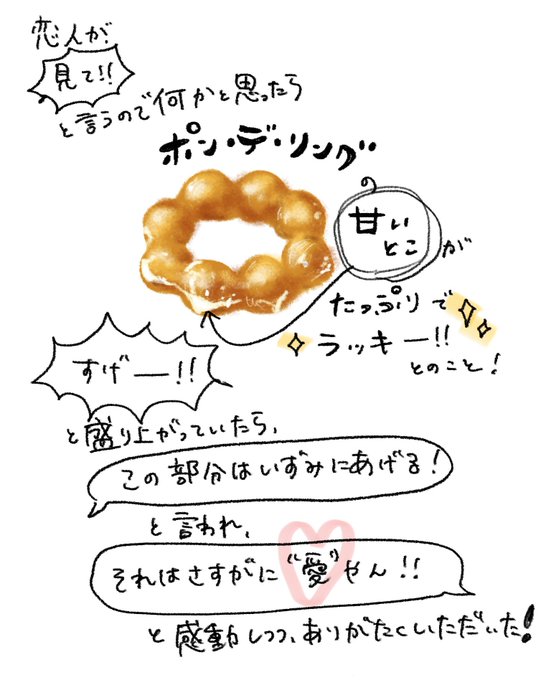 恋人が
見て!!
と言うので何かと思ったら
ポン・デ・リング
甘い
とこが
たっぷりで
ラッキー!!
とのこと!
すげー!!
と盛り上がっていたら、
この部分はいずみにあげる!
と言われ、
それはさすがに“愛”やん!!
と感動しつつ、ありがたくいただいた!